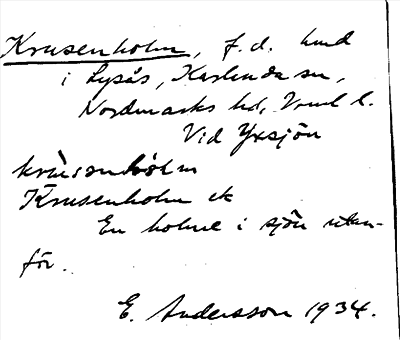 Krusenholm, f.d. lund
i Lysås, Karlanda sn,
Nordmarks hd, Vrml l.
Vid Yxsjön
krùsənhòlm
Krusenholm ek
En holme i sjön utan-
för.
E. Andersson 1934.